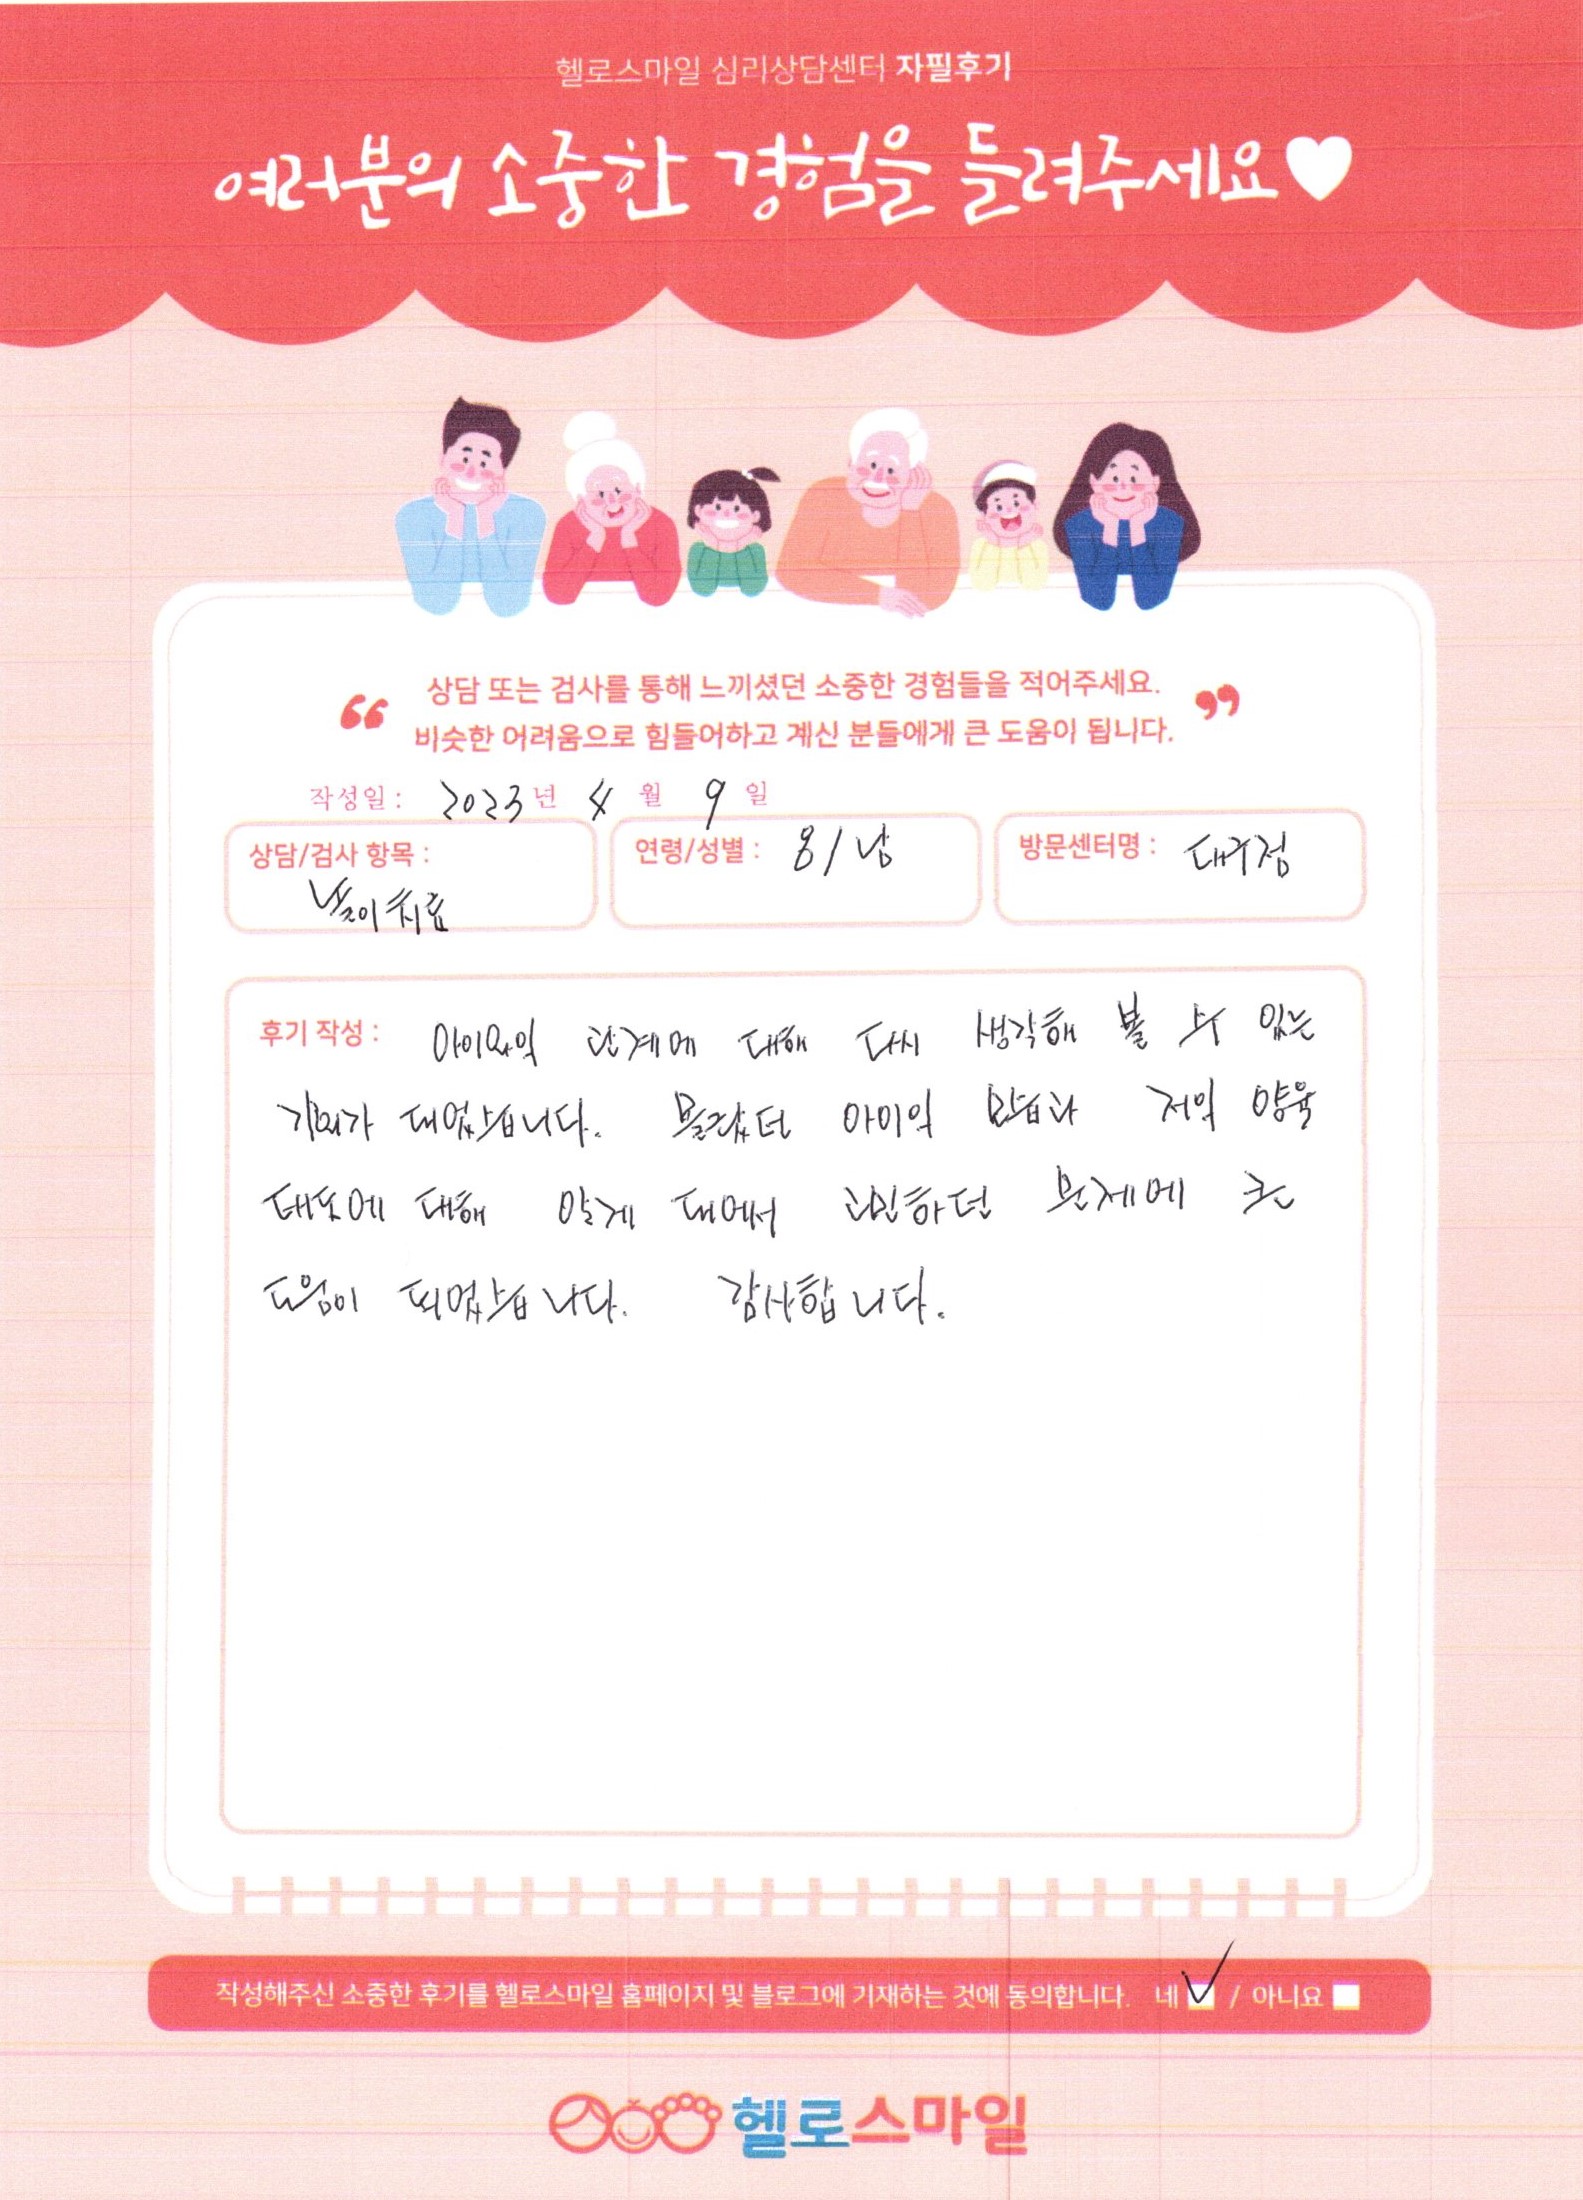 헬로스마일 심리상담센터 자필후기
여러분의 소중한 경험을 들려주세요
“ 상담 또는 검사를 통해 느끼셨던 소중한 경험들을 적어주세요. ”
비슷한 어려움으로 힘들어하고 계신 분들에게 큰 도움이 됩니다.
작성일 : 2023 년 4 월 9 일
상담/검사 항목 : 연령/성별 : 8/남 방문센터명 : 대구점
놀이치료
후기 작성 : 아이와의 관계에 대해 다시 생각해 볼 수 있는
기회가 되었습니다. 몰랐던 아이의 모습과 저의 양육
태도에 대해 알게 되어서 고민하던 문제에 큰
도움이 되었습니다. 감사합니다.
작성해주신 소중한 후기를 헬로스마일 홈페이지 및 블로그에 기재하는 것에 동의합니다. 네 / 아니요
헬로스마일